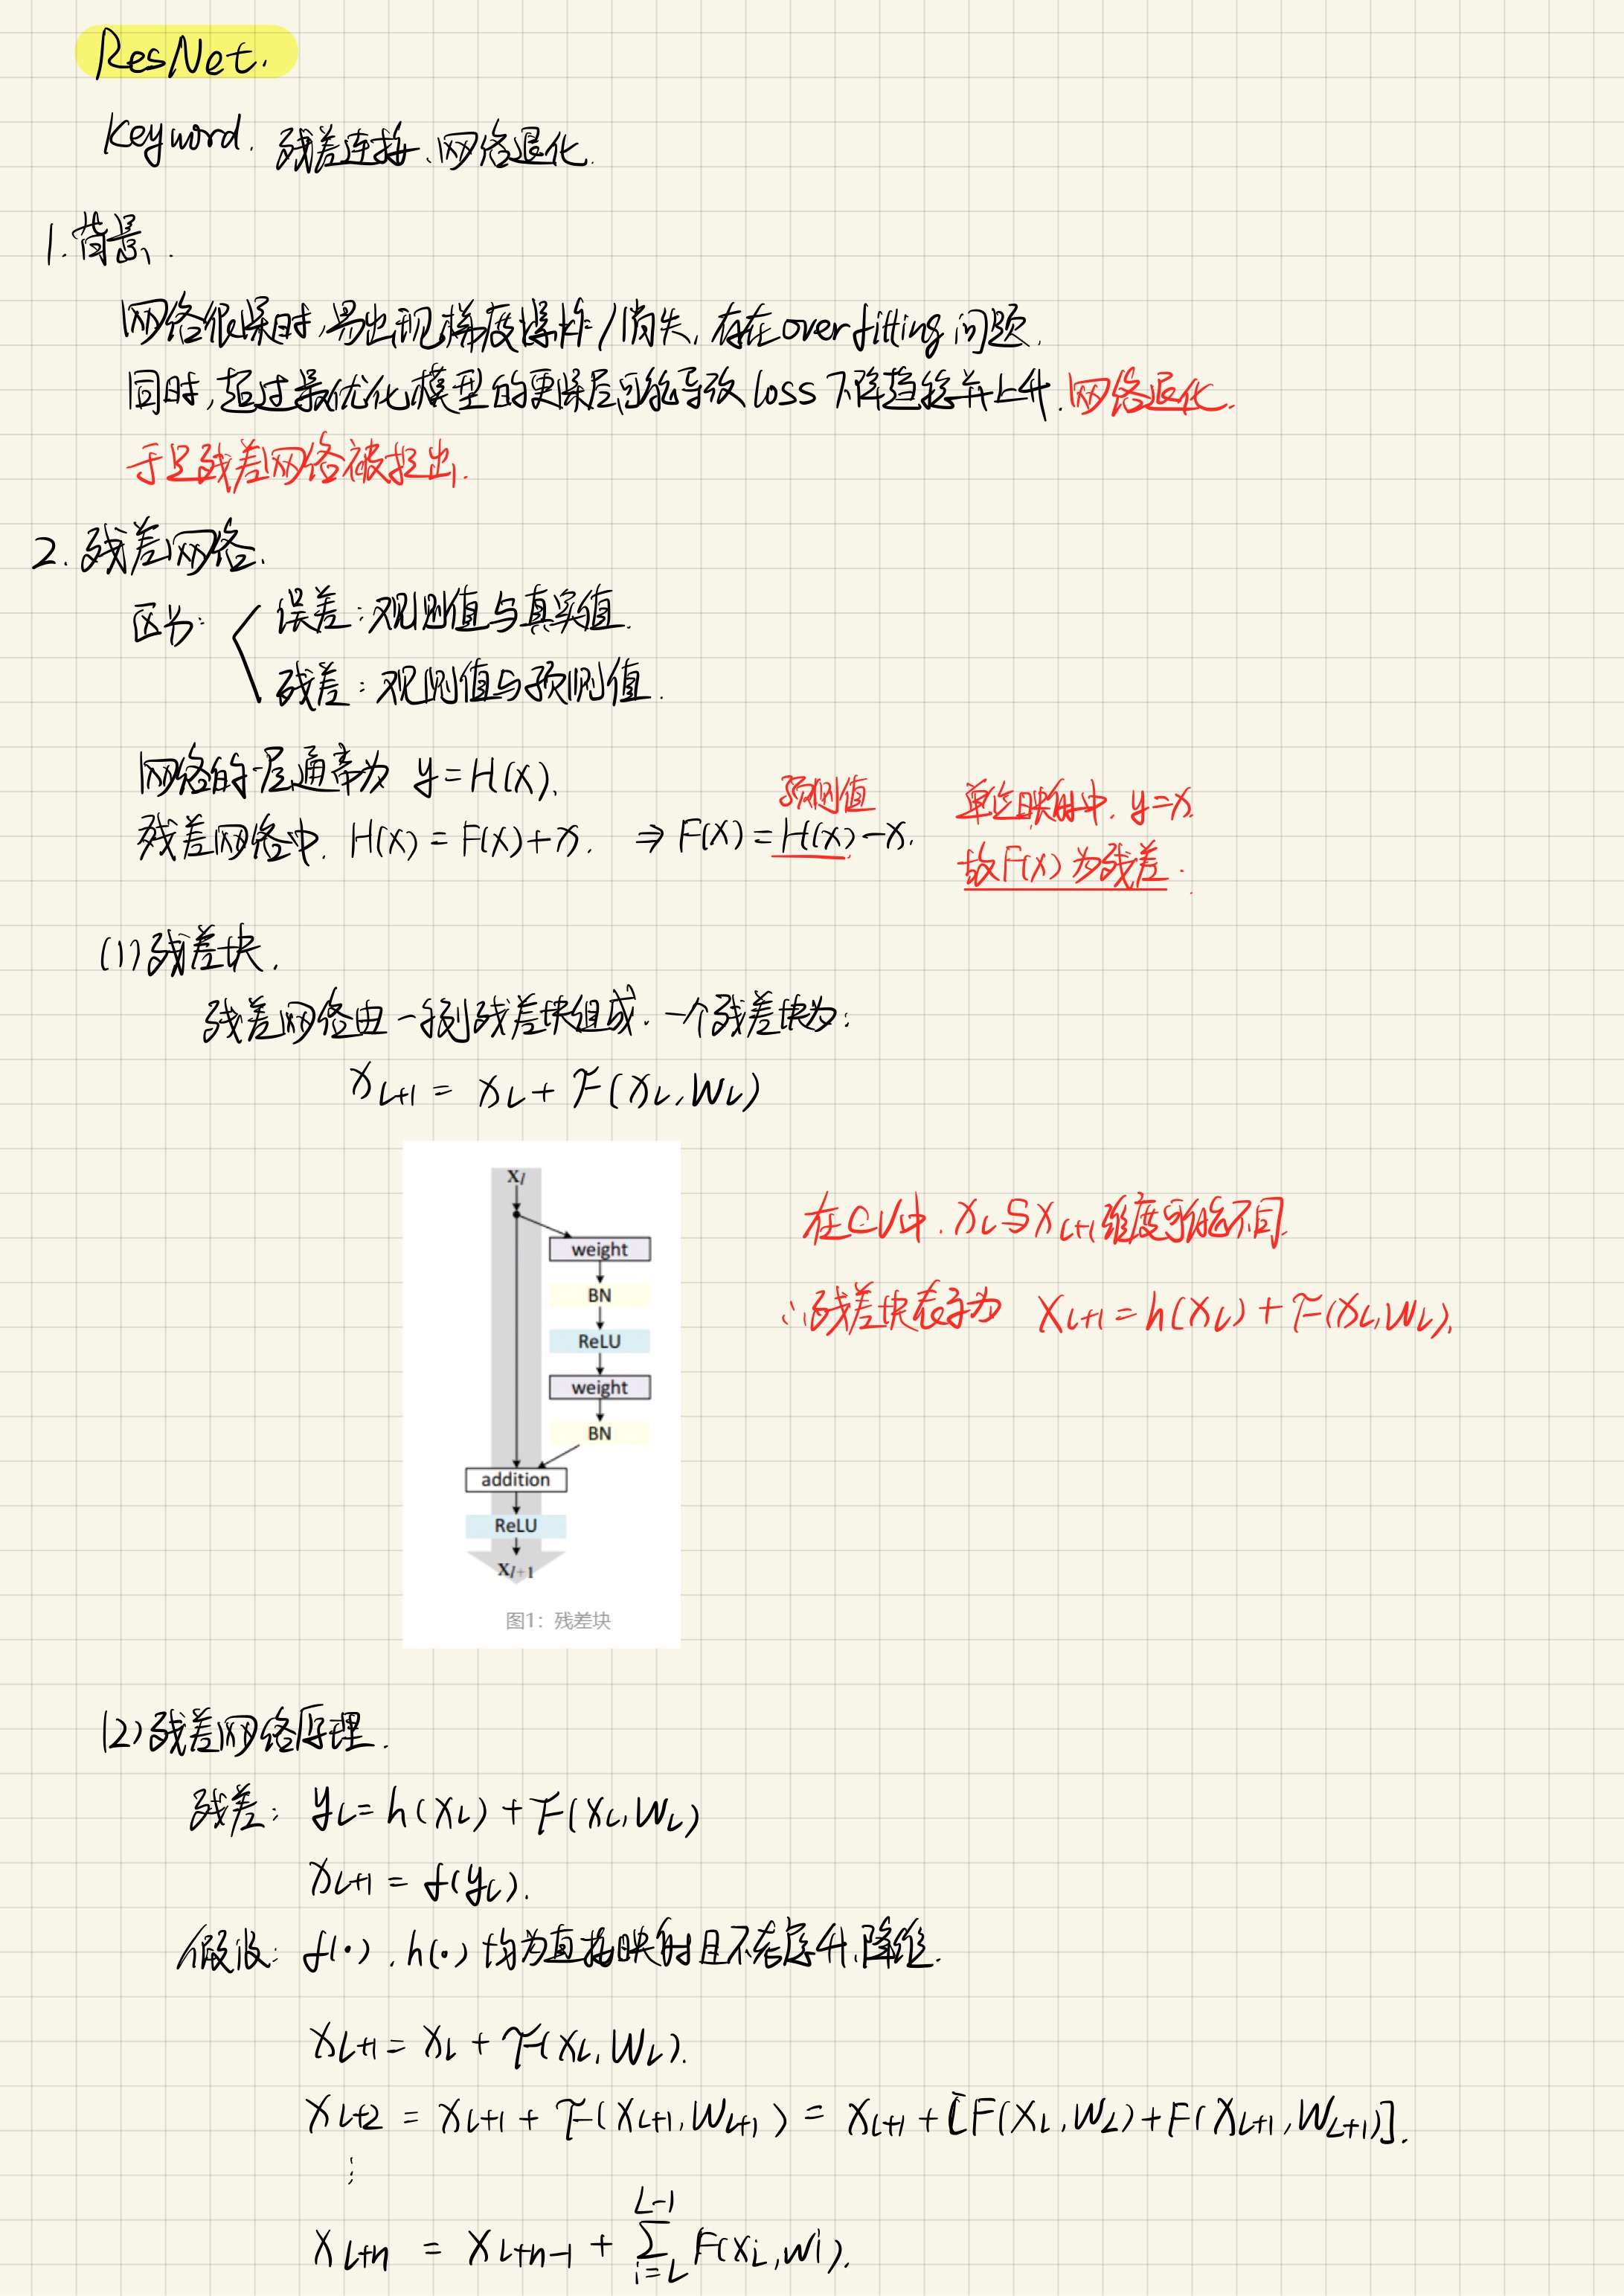 ResNet.
Keyword. 残差连接、网络退化.
1. 背景.
网络很深时,易出现梯度爆炸/消失,存在overfitting问题.
同时,超过最优化模型的更深层可能导致loss下降趋缓并上升.网络退化.
于是残差网络被提出.
2. 残差网络.
区分: 误差:观测值与真实值.
残差:观测值与预测值.
网络的一层通常为 y=H(x).
预测值 单位映射中. y=x.
残差网络中. H(x)=F(x)+x. ⇒ F(x)=H(x)-x.
故F(x)为残差.
(1)残差块.
残差网络由一系列残差块组成.一个残差块为:
x_{L+1} = x_L + F(x_L, W_L)
X_l
weight
BN
ReLU
weight
BN
addition
ReLU
X_{l+1}
图1:残差块
在CV中. x_L与x_{L+1}维度可能不同.
∴残差块表示为 X_{L+1}=h(X_L)+F(X_L,W_L).
(2)残差网络原理.
残差: y_L=h(x_L)+F(x_L,W_L)
x_{L+1}=f(y_L).
假设: f(·), h(·)均为直接映射且不考虑升、降维.
x_{L+1}=x_L+F(x_L,W_L).
x_{L+2} = x_{L+1}+F(x_{L+1},W_{L+1}) = x_{L+1}+[F(x_L,W_L)+F(x_{L+1},W_{L+1})].
⋮
x_{L+n} = x_{L+n-1} + ∑_{i=L}^{L-1} F(x_i,w_i).